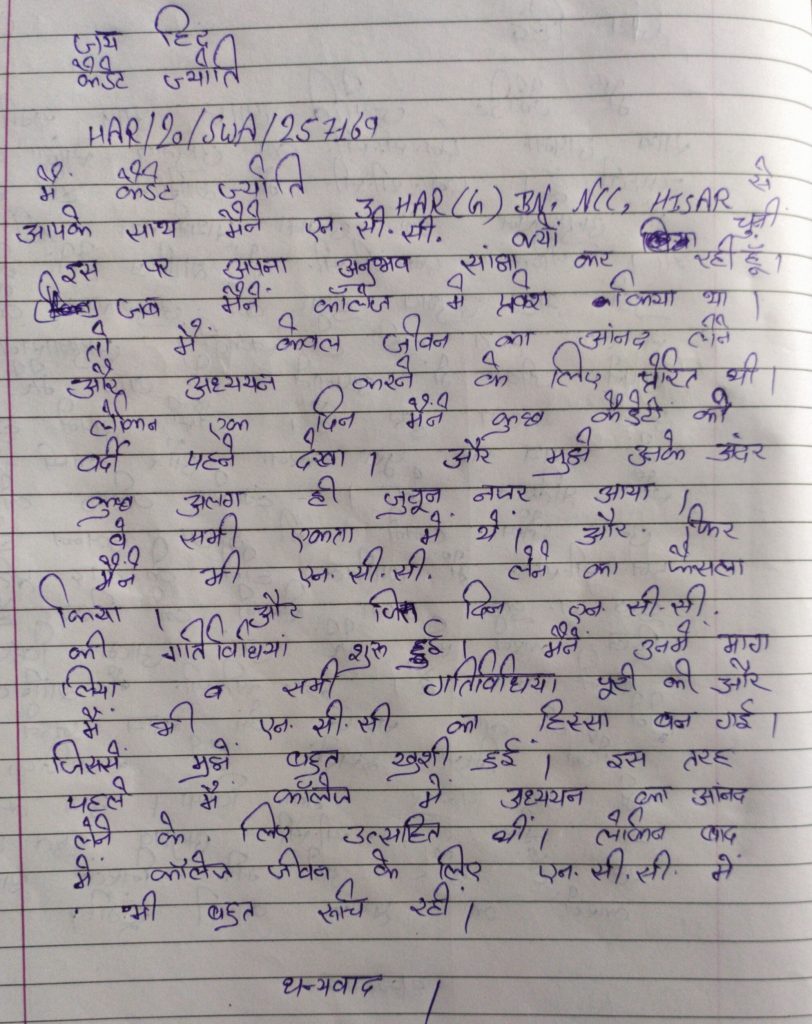 जय हिंद
कैडेट ज्योति
HAR/20/SWA/257169
मैं कैडेट ज्योति 3 HAR(G) BN, NCC, HISAR से
आपके साथ मैंने एन सी.सी. क्यों चुनी
इस पर अपना अनुभव सांझा कर रही हूँ।
जब मैंने कॉलेज मे प्रवेश किया था।
तो मैं केवल जीवन का आंनद लेने
और अध्ययन करने के लिए प्रेरित थी।
लेकिन एक दिन मैंने कुछ कैडेटो को
वर्दी पहने देखा। और मुझे उनके अंदर
कुछ अलग ही जुनून नजर आया।
वे सभी एकता मे थे। और फिर
मैंने भी एन.सी.सी. लेने का फैसला
किया। और जिस दिन एन.सी.सी.
की गतिविधियां शुरू हुई। मैंने उनमे भाग
लिया व सभी गतिविधिया पूरी की और
मैं भी एन.सी.सी का हिस्सा बन गई।
जिससे मुझे बहुत खुशी हुई। इस तरह
पहले मैं कॉलेज में अध्ययन का आंनद
लेने के लिए उत्साहित थी। लेकिन बाद
में कॉलेज जीवन के लिए एन.सी.सी. में
भी बहुत रूचि रही।
धन्यवाद।